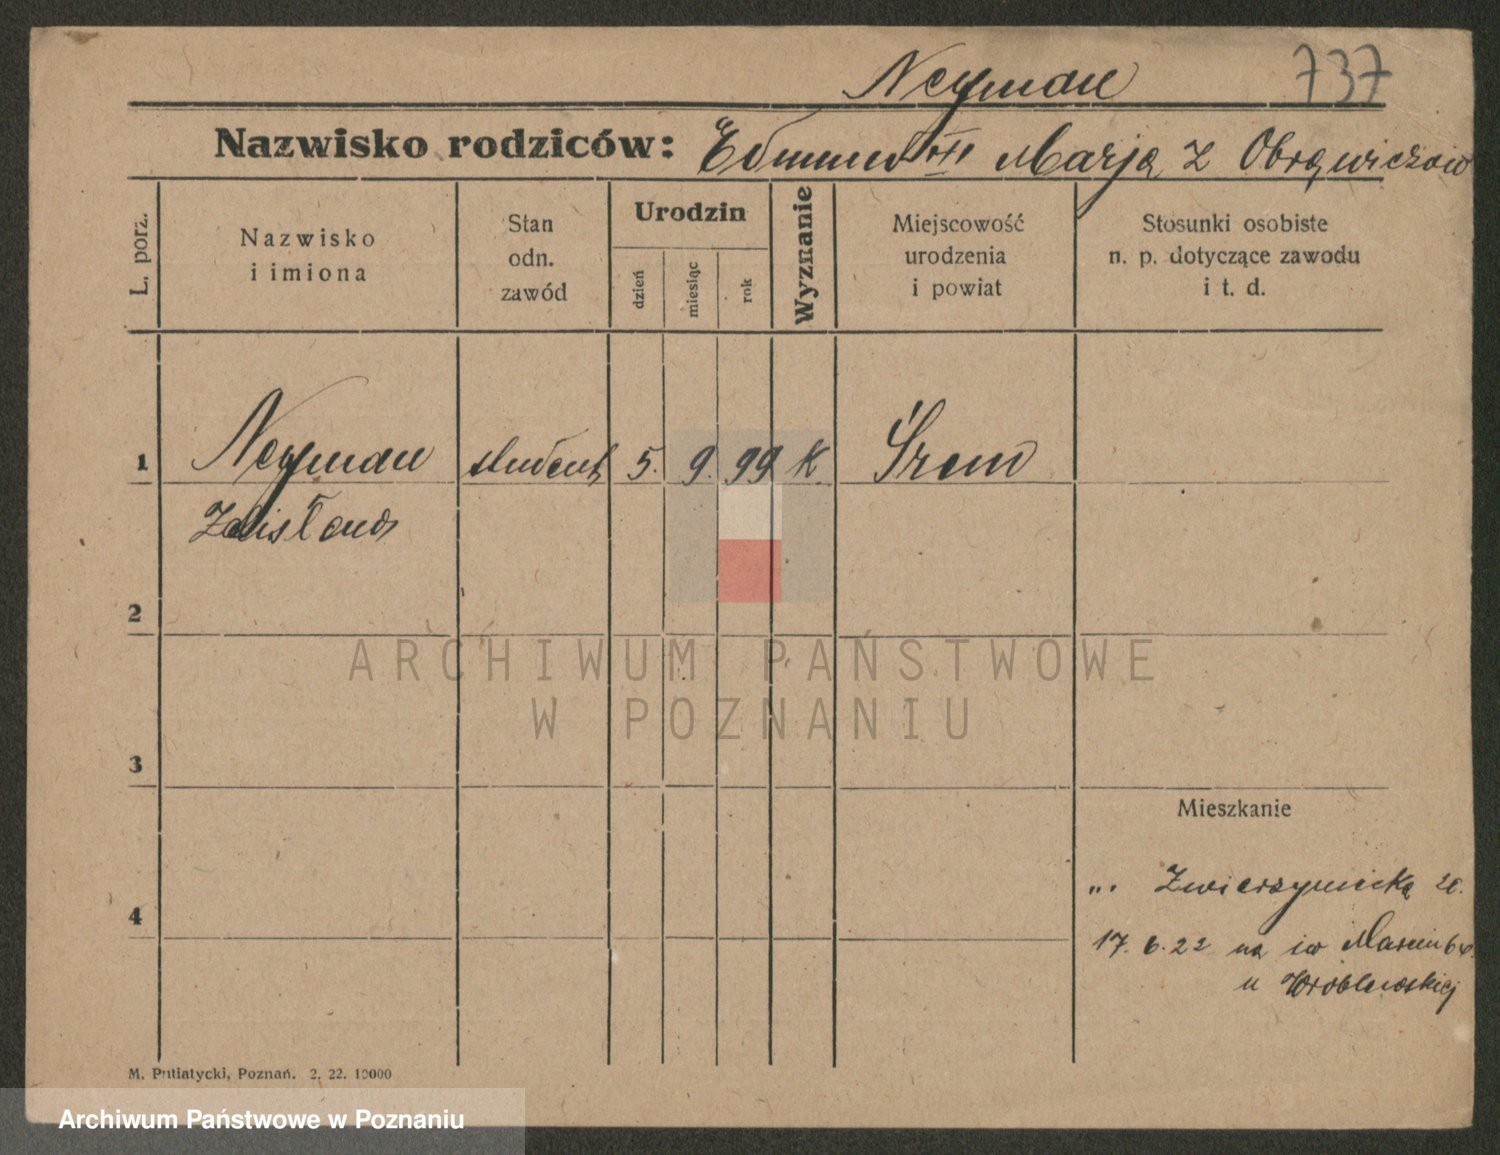 Neyman 737
Nazwisko rodziców: Edmund Marja z Obrąwiczów
L. porz.
Nazwisko
i imiona
Stan
odn.
zawód
Urodzin
dzień
miesiąc
rok
Wyznanie
Miejscowość
urodzenia
i powiat
Stosunki osobiste
n. p. dotyczące zawodu
i t. d.
1 Neyman student 5. 9. 99 K. Śrem
Zdzisław
2
3
4
ARCHIWUM PAŃSTWOWE
W POZNANIU
Mieszkanie
„. Zwierzyniecka
17. 6. 22 na św Marcin
u Wroblewskiej
M. Putiatycki, Poznań. 2. 22. 10000
Archiwum Państwowe w Poznaniu